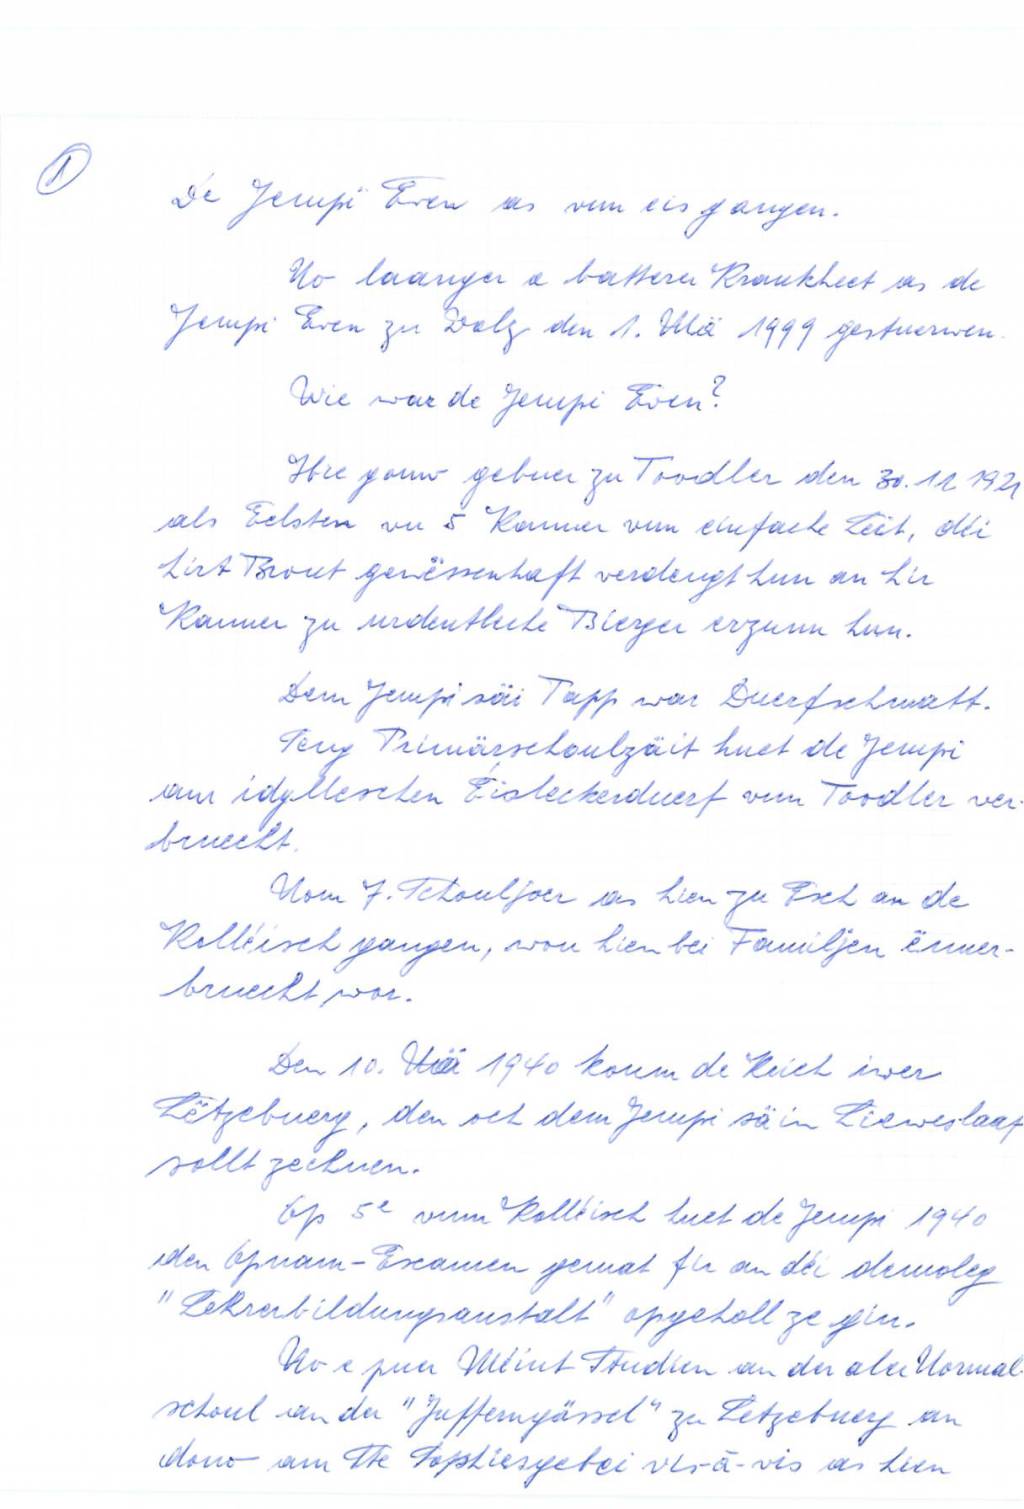 1
De Jempi Even as vun eis gangen.
No laanger a batterer Krankheet as de
Jempi Even zu Dolg den 1. Mä 1999 gestuerwen.
Wie war de Jempi Even?
Hie gouw gebuer zu Toodler den 30.12 1921
als Eelsten vu 5 Kanner vun einfache Leit, déi
hirt Brout gewëssenhaft verdengt hun an hir
Kanner zu urdentleche Bierger erzunn hun.
Dem Jempi säi Papp war Duerfschmatt.
Seng Primärschoulzäit huet de Jempi
am idylleschen Éislekerduerf vun Toodler ver-
bruecht.
Nom 7. Schouljoer as hien zu Esch an de
Kolléisch gangen, wou hien bei Familjen ënner-
bruecht wor.
Den 10. Mä 1940 koum de Reich iwer
Lëtzebuerg, den och dem Jempi säin Lieweslaaf
sollt zechnen.
Op 5e vum Kolléisch huet de Jempi 1940
den Opnam-Examen gemat fir an déi demoleg
"Lehrerbildungsanstalt" opgeholl ze gin.
No e puer Méint Studien an der aler Normal-
schoul an der "Jufferngässel" zu Letzebuerg an
dono am Ste Sophiesgebei vis-à-vis as hien